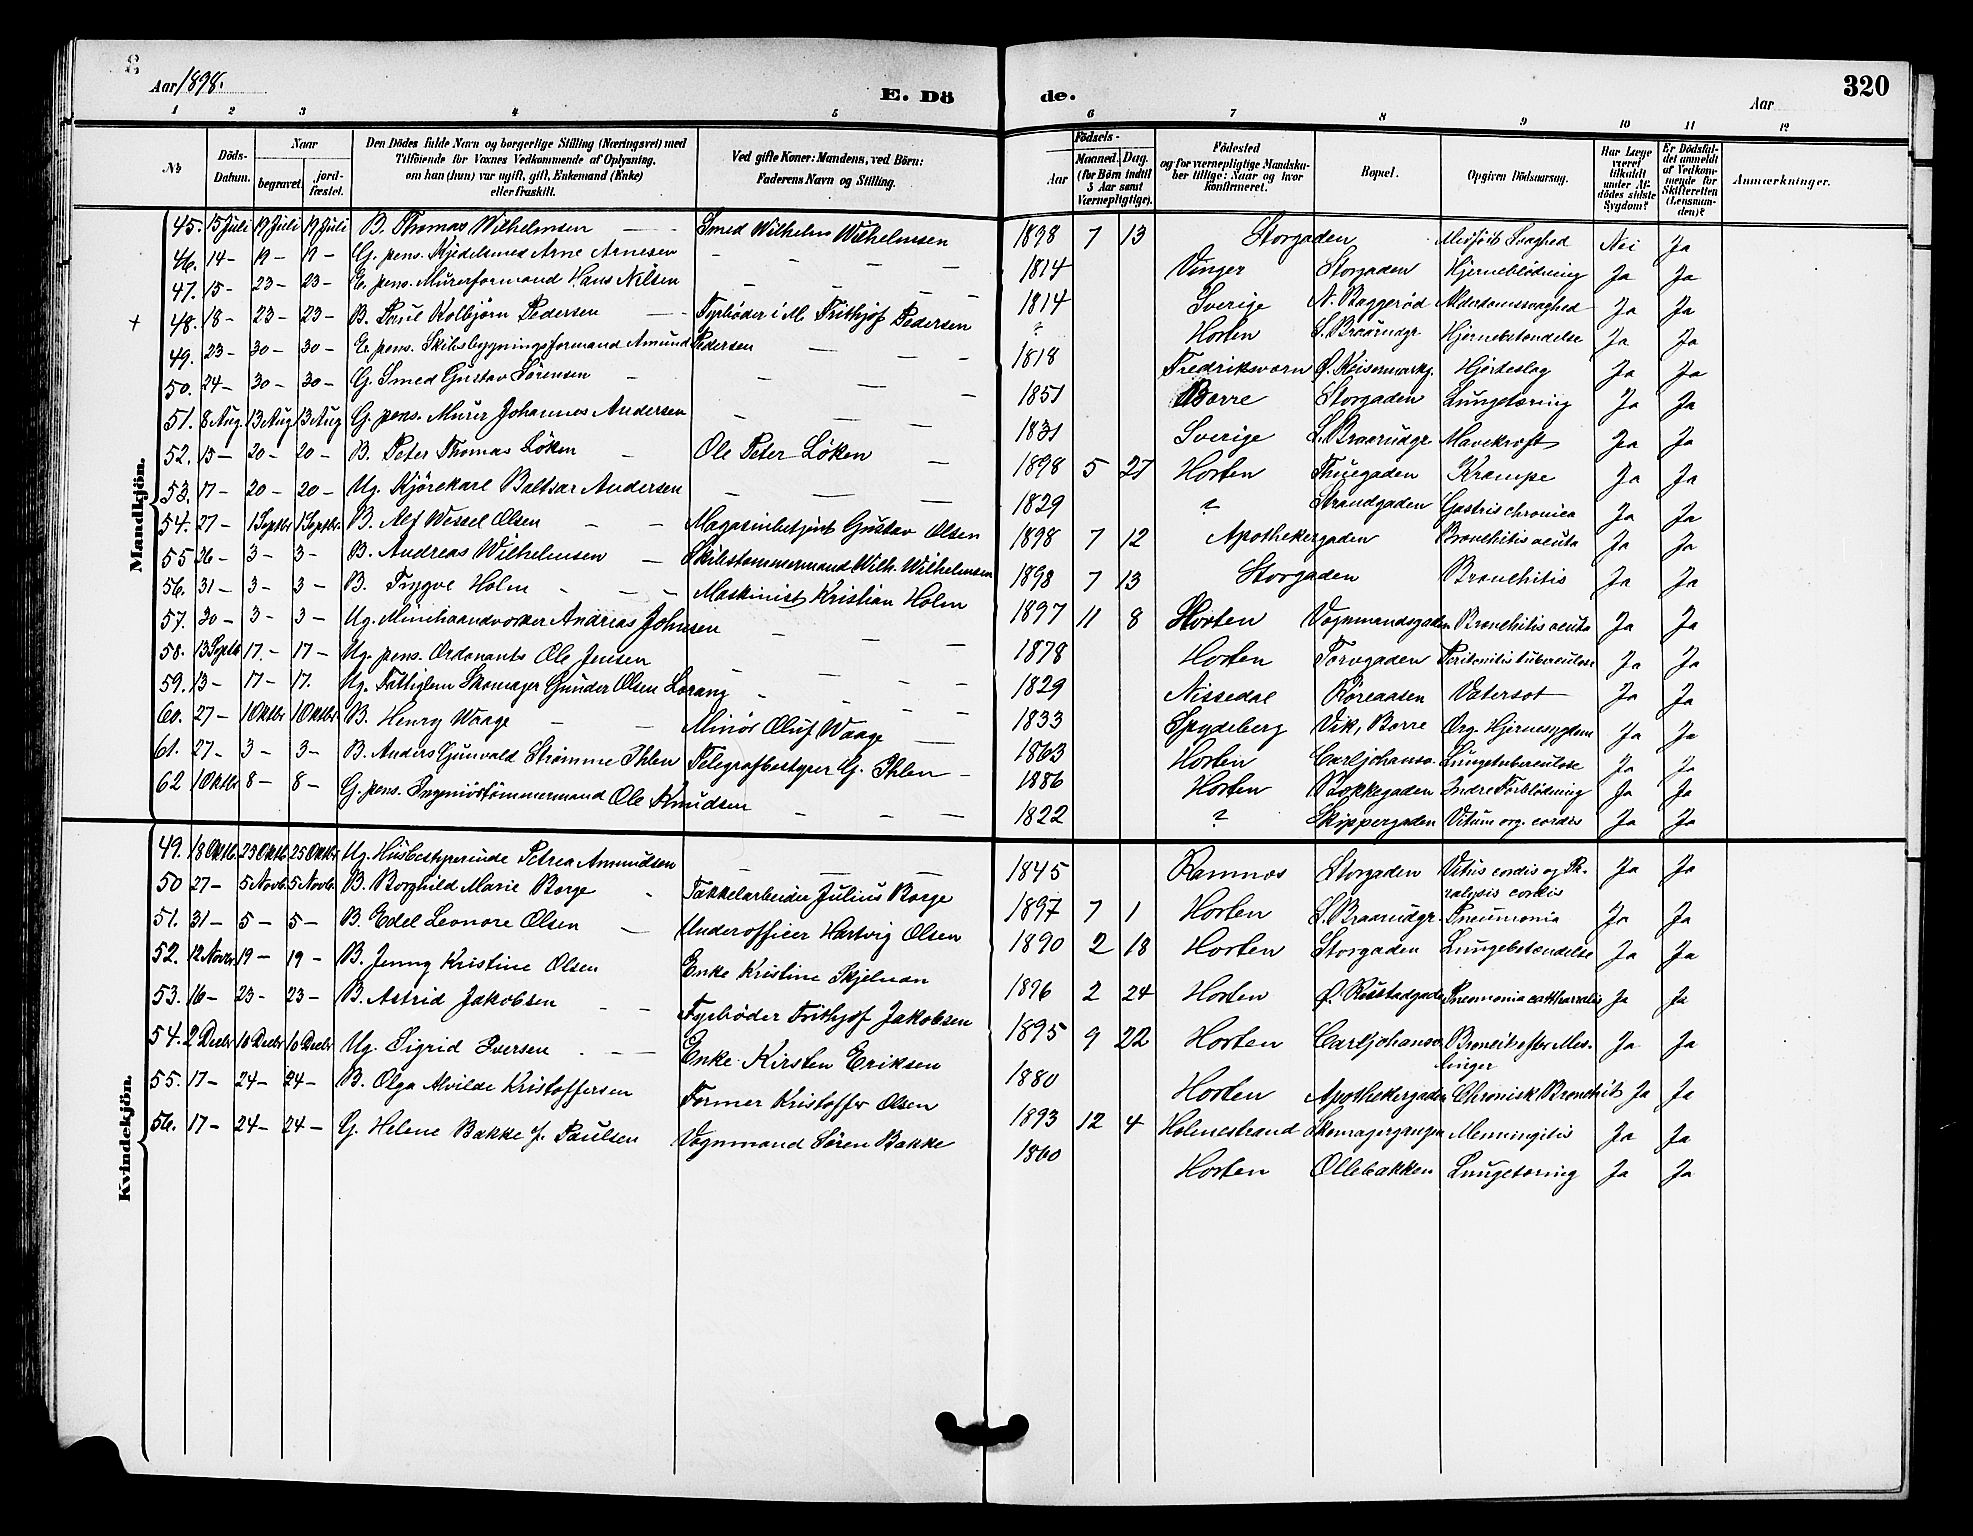 Aar 1898.
E. Dö
de.
Aar
320
1 2 3 4 5 6 7 8 9 10 11 12
No
Döds-Datum.
Naar
begravet.
jordfæstet.
Den Dödes fulde Navn og borgerlige Stilling (Næringsvei) med
Tilföiende for Voxnes Vedkommende af Oplysning,
om han (hun) var ugift, gift, Enkemand (Enke)
eller fraskilt.
Ved gifte Koner: Mandens, ved Börn:
Faderens Navn og Stilling.
Födsels-
Aar
Maaned. Dag.
(for Börn indtil
Aar samt
Værnepligtige).
Födested
og for værnepligtige Mandskaber tillige: Naar og hvor
konfirmeret.
Bopæl.
Opgiven Dödsaarsag.
Har Læge været tilkaldt under Afdödes sidste Sygdom?
Er Dödsfaldet anmeldt af Vedkommende for Skifteretten (Lensmanden)?
Anmærkninger.
Mandkjön.
45. 15 Juli 19 Juli 19 Juli B. Thomas Wilhelmsen Smed Wilhelm Wilhelmsen 1898 7 13 Storgaden Medfödt Svaghed Nei Ja
46. 14 – 19 – 19 – G. pens. Kjedelsmed Arne Arnesen 1814 Vinger Storgaden Hjerneblödning Ja Ja
47. 15 – 23 – 23 – E. pens. Murerformand Hans Nilsen 1814 Sverige N. Baggeröd Alderdomssvaghed Ja Ja
+ 48. 18 – 23 – 23 – B. Poul Kolbjörn Pedersen Fyrböder i M. Frithjof Pedersen ? Horten S. Braarudgr. Hjernebetændelse Ja Ja
49. 23 – 30 – 30 – E. pens. Skibsbygningsformand Amund Pedersen 1818 Fredriksværn Ø. Keisermarkg. Hjerteslag Ja Ja
50. 24 – 30 – 30 – G. Smed Gustav Sörensen 1851 Borre Storgaden Lungetæring Ja Ja
51. 8 Aug. 13 Aug 13 Aug G. pens. Murer Johannes Andersen 1831 Sverige S. Braarudgr Mavekræft Ja Ja
52. 15 – 20 – 20 – B. Peter Thomas Löken Ole Peter Löken 1898 5 27 Horten Thuegaden Krampe Ja Ja
53. 17 – 20 – 20 – Ug. Kjörekarl Baltsar Andersen 1829 ? Strandgaden Gastris chronica Ja Ja
54. 27 – 1 Septbr 1 Septbr. B. Alf Wessel Olsen Magasinbetjent Gustav Olsen 1898 7 12 Apothekergaden Bronchitis acuta Ja Ja
55 26 – 3 – 3 – B. Andreas Wilhelmsen Skibstømmermand Wilh. Wilhelmsen 1898 7 13 Storgaden Bronchitis Ja Ja
56. 31 – 3 – 3 – B. Trygve Holm Maskinist Kristian Holm 1897 11 8 Horten Vognmandsgaden Bronchitis acuta Ja Ja
57. 30 – 3 – 3 – Ug. Minehaandværker Andreas Johnsen 1878 Horten Torvgaden Peritonitis tuberculose Ja Ja
58. 13 Septb 17. – 17 – Ug. pens. Ordonants Ole Jensen 1829 Nissedal Röreaasen Vatersot Ja Ja
59. 13 – 17 – 17. Ug. Fattiglem Skomager Gunder Olsen Lorang 1833 Spydeberg Vik, Borre Org. Hjernesygdom Ja Ja
60. 27 – 1 Oktbr 1 Oktbr. B. Henry Waage Minör Oluf Waage 1863 Horten Carljohansv. Lungetuberculose Ja Ja
61. 27 – 3 – 3 – B. Anders Gunvald Strömme Ihlen Telegrafbestyrer G. Ihlen 1886 Horten Bakkegaden Indre Forblödning Ja Ja
62 1 Oktbr 8 – 8 – G. pens. Ingeniörtömmermand Ole Knudsen 1822 ? Skippergaden Vitium org. cordis Ja Ja
Kvindekjön.
49. 18 Oktb. 25 Oktb 25 Oktbr. Ug. Husbestyrerinde Petrea Amundsen 1845 Ramnes Storgaden Vitus cordis og Paralysis cordis Ja Ja
50 27 – 5 Novb. 5 Novb. B. Borghild Marie Borge Takkelarbeider Julius Borge 1897 7 1 Horten S. Braarudgr. Pneumonia Ja Ja
51. 31 – 5 – 5 – B. Edel Leonore Olsen Underofficer Hartvig Olsen 1890 2 18 Horten Storgaden Lungebetændelse Ja Ja
52. 12 Novbr. 19 – 19 – B. Jenny Kristine Olsen Enke Kristine Skjelnan 1896 2 24 Horten Ø. Rustadgade Pneomonia catharralis Ja Ja
53. 16 – 23 – 23 – B. Astrid Jakobsen Fyrböder Frithjof Jakobsen 1895 9 22 Horten Carljohansv Bronchit efter Meslinger Ja Ja
54. 2 Decbr 10 Decbr 10 Decbr Ug. Sigrid Iversen Enke Kirsten Eriksen 1880 Horten Apothekergaden Chronisk Bronchit Ja Ja
55. 17 – 24 – 24 – B. Olga Alvilde Kristoffersen Former Kristoffer Olsen 1893 12 4 Holmestrand Menningitis Ja Ja
56. 17 – 24 – 24 – G. Helene Bakke f. Paulsen Vognmand Sören Bakke 1860 Horten Ollebakken Lungetæring Ja Ja